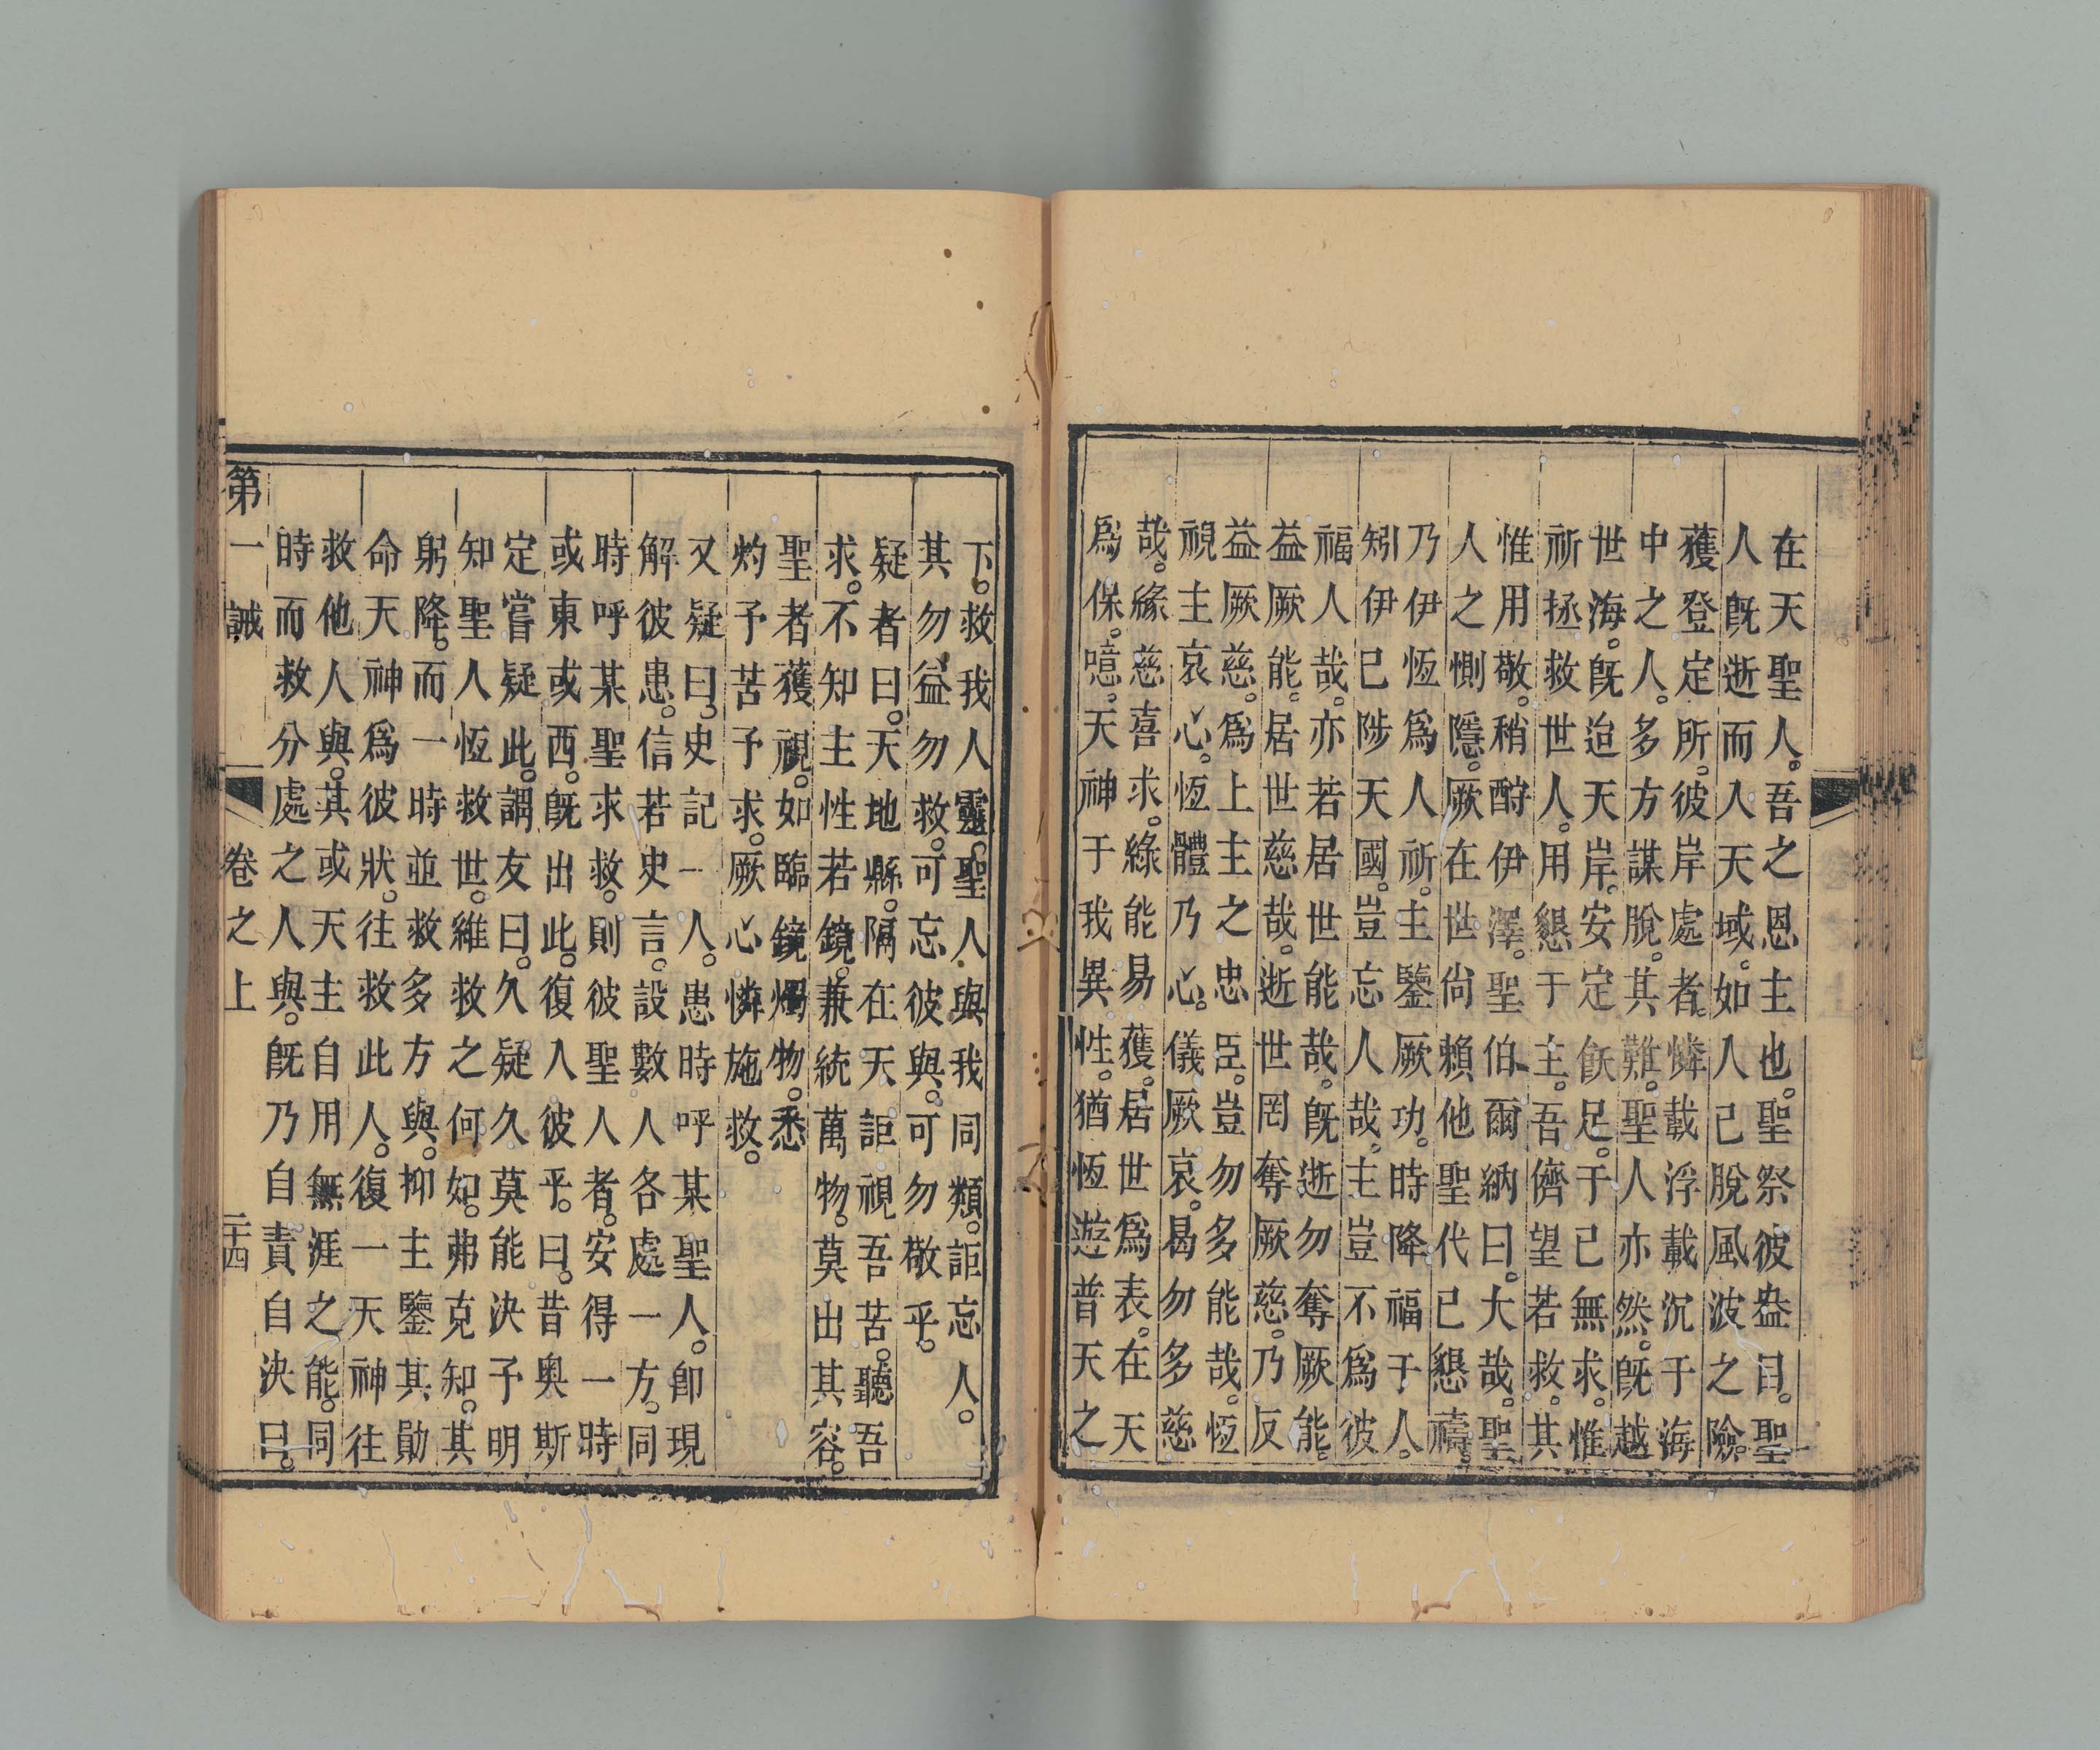 在天聖人。吾之恩主也。聖祭彼益目。聖
人既逝而入天域。如人已脫風波之險。
獲登定所。彼岸處者。憐載浮載沉于海
中之人。多方謀脫。其難。聖人亦然。既越
世海。既迫天岸。安定飫足。于已無求。惟
祈拯救世人。用懇于主。吾儕望若救。其
惟用敬。稍酧伊澤。聖伯爾納曰。大哉。聖
人之惻隱。厥在世尚賴他聖代已懇禱。
乃伊恆為人祈。主鑒厥功。時降福于人。
矧伊已陟天國。豈忘人哉。主豈不為彼
福人哉。亦若居世能哉。既逝勿奪厥能。
益厥能。居世慈哉。逝世罔奪厥慈。乃反
益厥慈。為上主之忠臣。豈勿多能哉。恆
視主哀心。恆體乃心。儀厥哀。曷勿多慈
哉。緣慈喜求。緣能易獲。居世為表。在天
為保。噫。天神于我異性。猶恆遊普天之
下。救我人靈。聖人與我同類。詎忘人。
其勿益勿救。可忘彼與。可勿敬乎。
疑者曰。天地縣隔。在天詎視吾苦。聽吾
求。不知主性若鏡。兼統萬物。莫出其容。
聖者獲視。如臨鏡燭物。悉
灼予苦予求。厥心憐施救。
又疑曰。史記一人。患時呼某聖人。卽現
解彼患。信若史言。設數人各處一方。同
時呼某聖求救。則彼聖人者。安得一時
或東或西。既出此。復入彼乎。曰。昔奧斯
定嘗疑此。謂友曰。久疑久莫能決予明
知聖人恆救世。維救之何如。弗克知。其
躬降。而一時並救多方與。抑主鑒其勛
命天神為彼狀。往救此人。復一天神往
救他人與。其或天主自用無涯之能。同
時而救分處之人與。既乃自責自決曰。
第一誡 卷之上 二十四